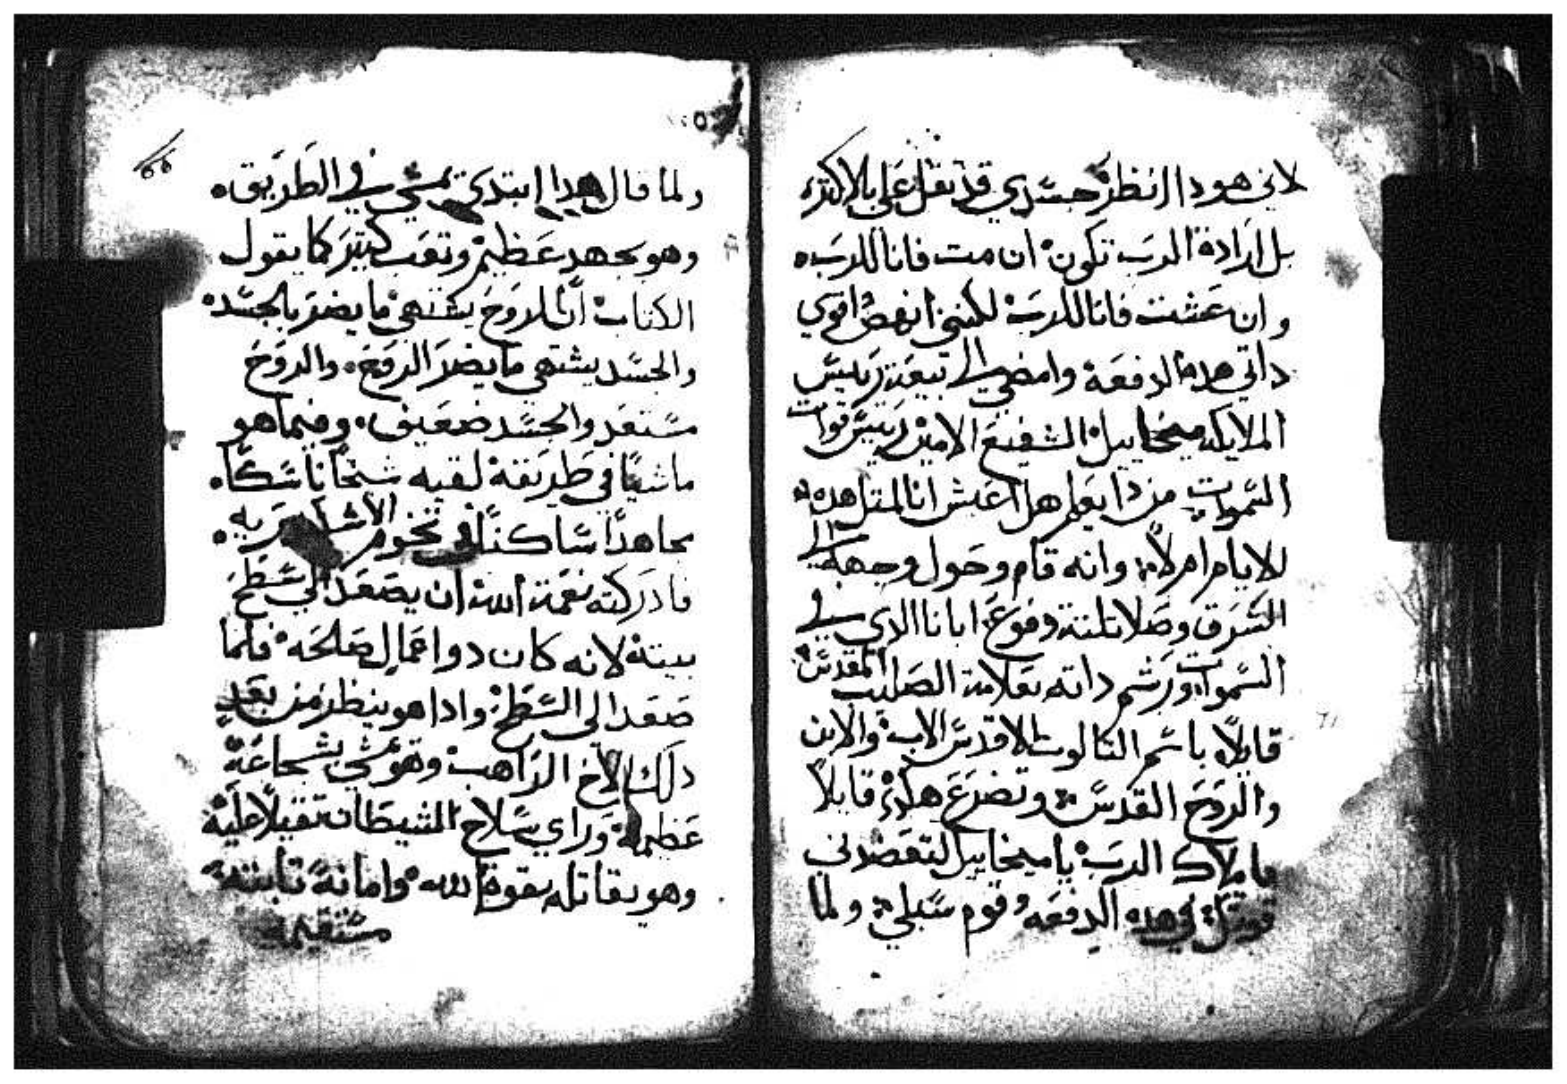 لاني هودا انظر جسدي قد ثقل علي بالاكثر
بل ارادة الرب تكون ان مت فانا للرب
وان عشت فانا للرب لكنني انهض اقوي
داتي هده الدفعة وامضي الي بيعة رييس
الملايكه ميخاييل الشفيع الامين رييس قوات
السموات من دا يعلم هل اعيش انا لمتل هده
للايام ام لا وانه قام وحول وجهه الي
الشرق وصلا تلتة دفوع ابانا الدي في
السموات ورشم داته بعلامة الصليب المقدس
قايلا باسم التالوت الاقدس الاب والابن
والروح القدس وتضرع هكدي قايلا
يا ملاك الرب يا ميخاييل لتعضدني
قوتك في هده الدفعه وقوم سبلي ولما
ولما قال هدا ابتدي يمشي في الطريق
وهو بجهد عظيم وتعب كتير كما يقول
الكتاب ان الروح يشتهي ما يضر بالجسد
والجسد يشتهي ما يضر الروح والروح
مستعد والجسد ضعيف وفيما هو
ماشيا في طريقة لقيه شيخا ناسكا
مجاهدا ساكنا في تخوم
فادركته نعمة الله ان يصعد الي سطح
بيتة لانه كان دوا اعمال صالحه فلما
صعد الي السطح وادا هو ينظر من بعد
دلك الاخ الراهب وهو يمشي بشجاعة
عظيمة وراي سلاح الشيطان تقيلا عليه
وهو يقاتله بقوة الله وامانة تابتة
مستقيمة